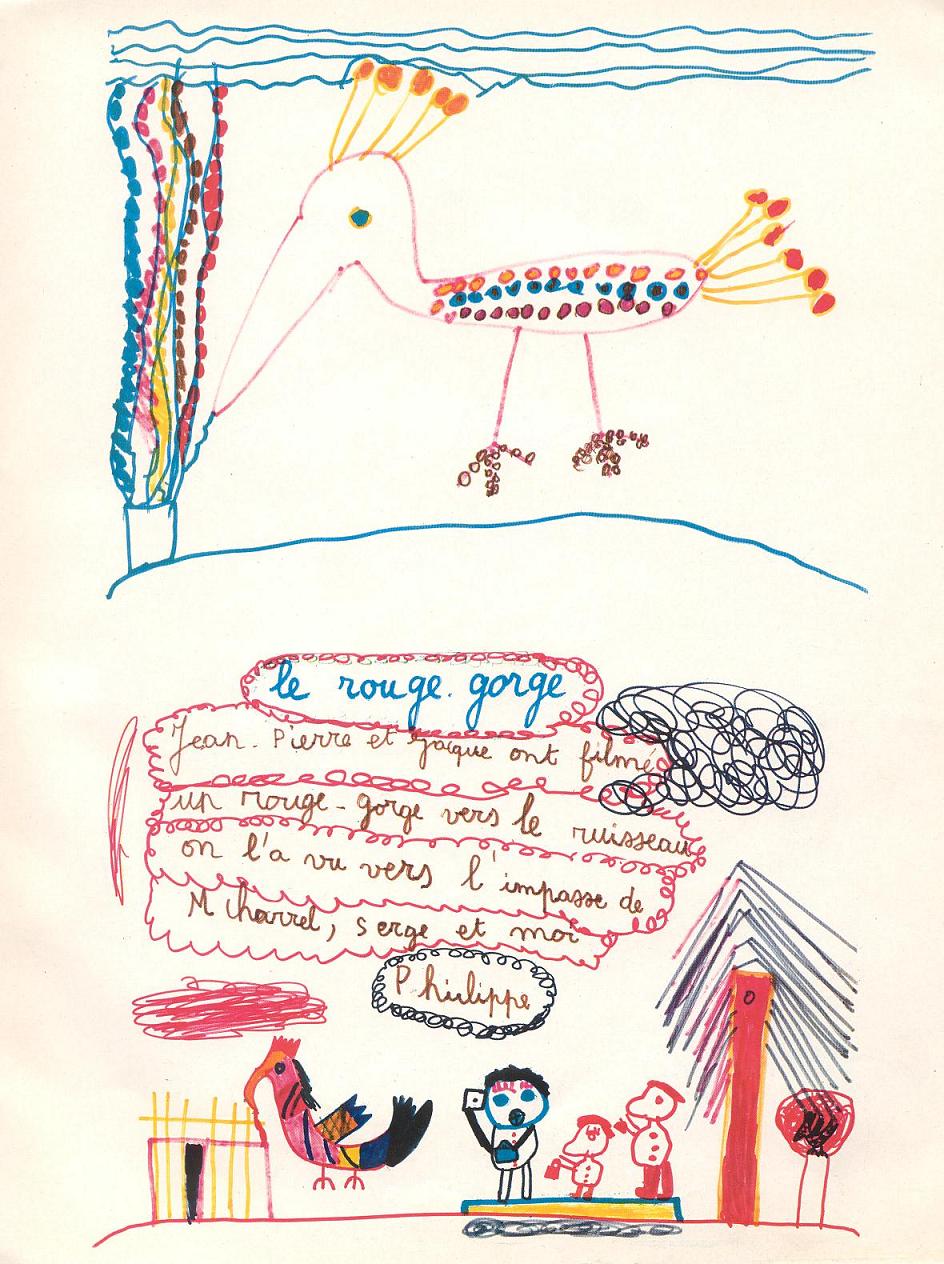 le rouge.gorge
Jean-Pierre et Jacque ont filmé
un rouge-gorge vers le ruisseau
on l'a vu vers l'impasse de
M charrel, serge et moi
Philippe